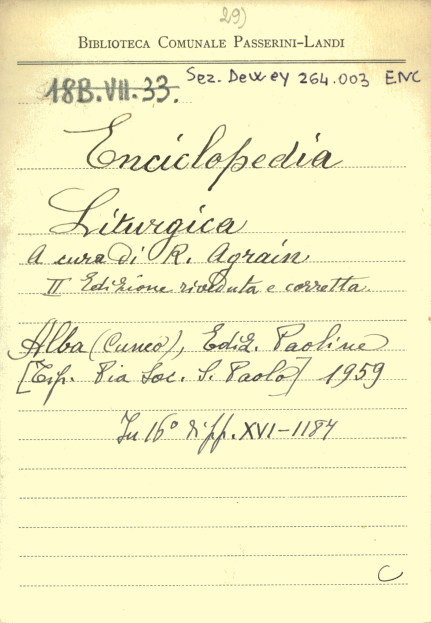 29)
BIBLIOTECA COMUNALE PASSERINI-LANDI
18B.VII.33. Sez. Dewey 264.003 ENC
Enciclopedia
Liturgica
A cura di R. Agrain
II Edizione riveduta e corretta.
Alba (Cuneo), Ediz. Paoline
[Tip. Pia Soc. S. Paolo] 1959
In 16° di pp. XVI-1184
C